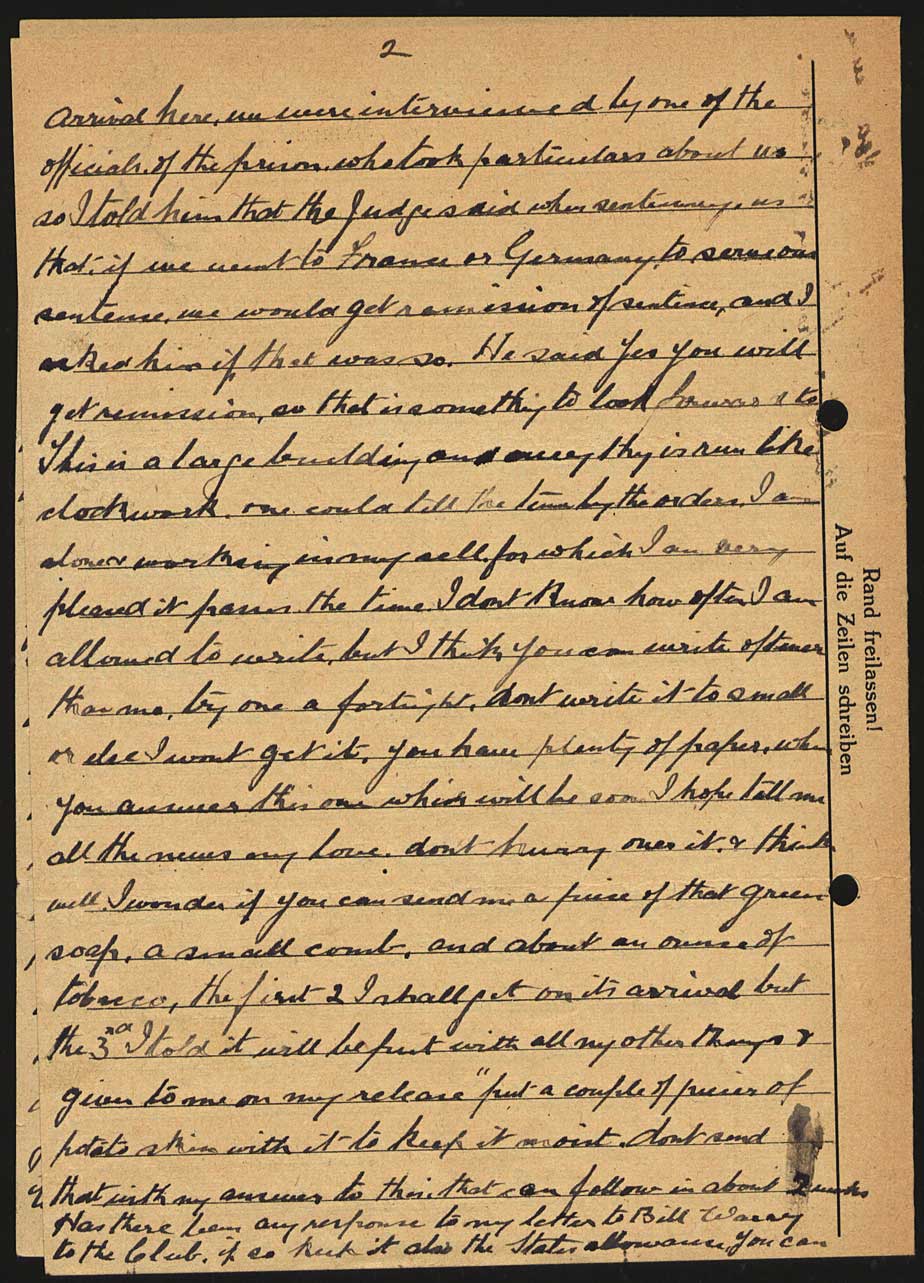 2
arrival here, we were interviewed by one of the
officials, of the prison, who took particulars about us
so I told him that the Judge said when sentencing, us
that, if we went to France or Germany, to serve our
sentence, we would get remission of sentence, and I
asked him if that was so. He said Yes you will
get remission, so that is something to look forward to
This is a large building and everything is run like
clockwork. one could tell the time by the orders, I am
alone & working in my sell, for which I am very
pleased it passes the time, I dont know how often I am
allowed to write, but I think you can write oftener
than me, try one a fortnight, dont write it to small
or else I wont get it, you have plenty of paper, when
you answer this one which will be soon I hope tell me
all the news my love. dont hurry over it, & think
well. I wonder if you can send me a piece of that green
soap, a small comb, and about an ounce of
tobacco, the first 2 I shall get on its arrival but
the 3rd I told it will be put with all my other things &
given to me on my release " put a couple of pieces of
potato skin with it to keep it moist, dont send
that with my answer to this, that can follow in about 2 weeks
Has there been any response to my letter to Bill
to the Club, if so keep it also the States allowance, you can
Rand freilassen!
Auf die Zeilen schreiben